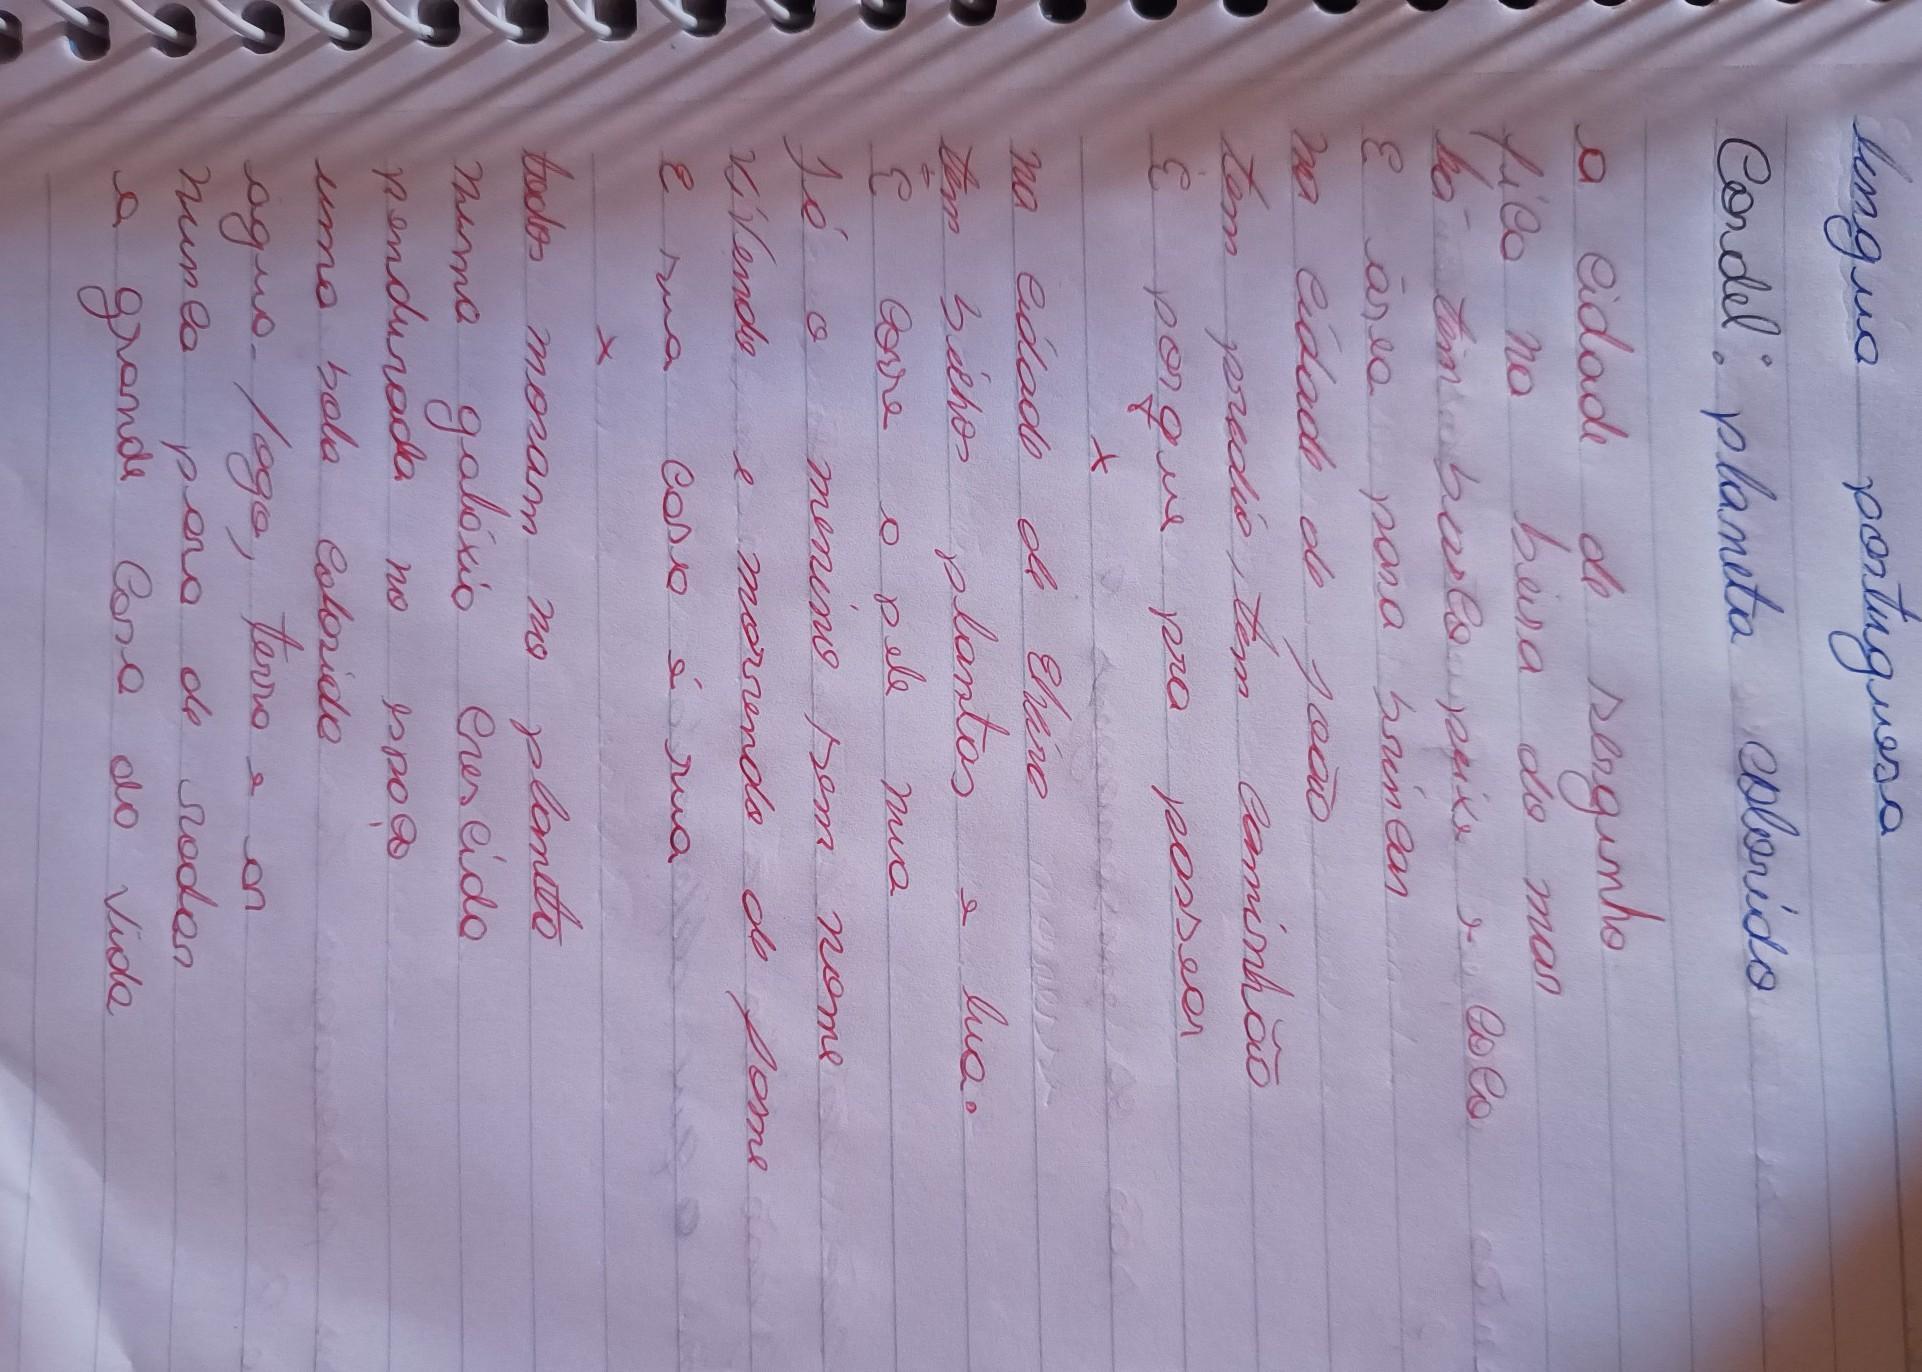 lingua portuguesa
Condel: planeta colorido
a cidade do serginho
fica na beira do mar
lá tem barco peixe e coco
E área para brincar
na cidade do joão
tem prédio, tem caminhão
E porque pra passear
x
na cidade de Chico
tem bichos plantas e lua.
E corre o pele nua
Jé o menino sem nome
vivendo e morrendo de fome
E sua casa é rua
x
todos moram no planeta
numa galáxia crescida
pendurada no espaço
uma bola colorida
agua. fogo, terra e ar
nunca para de rodar
a grande casa da vida